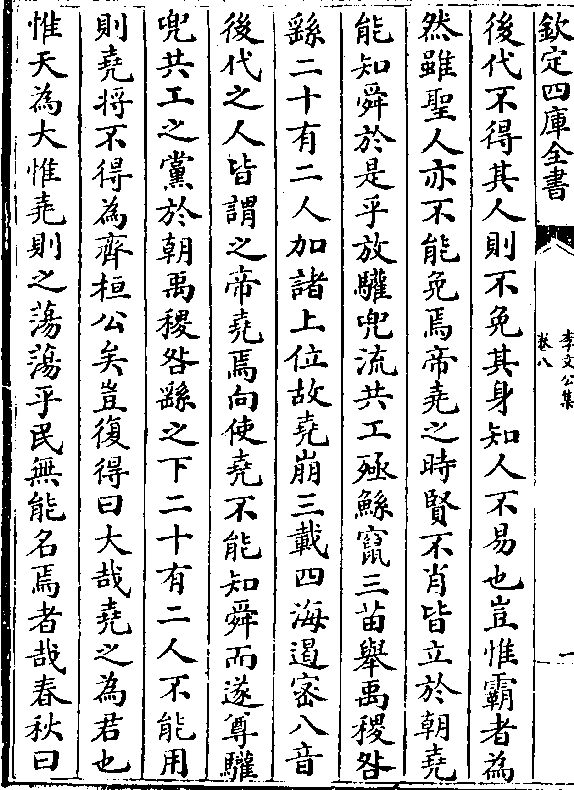 欽定四庫全書
李文公集
卷八
一
後代不得其人則不免其身知人不易也豈惟霸者為
然雖聖人亦不能免焉帝堯之時賢不肖皆立於朝堯
能知舜於是乎放驩兜流共工殛鯀竄三苗舉禹稷咎
繇二十有二人加諸上位故堯崩三載四海遏密八音
後代之人皆謂之帝堯焉向使堯不能知舜而遂尊驩
兜共工之黨於朝禹稷咎繇之下二十有二人不能用
則堯将不得為齊桓公矣豈復得曰大哉堯之為君也
惟天為大惟堯則之蕩蕩乎民無能名焉者哉春秋曰